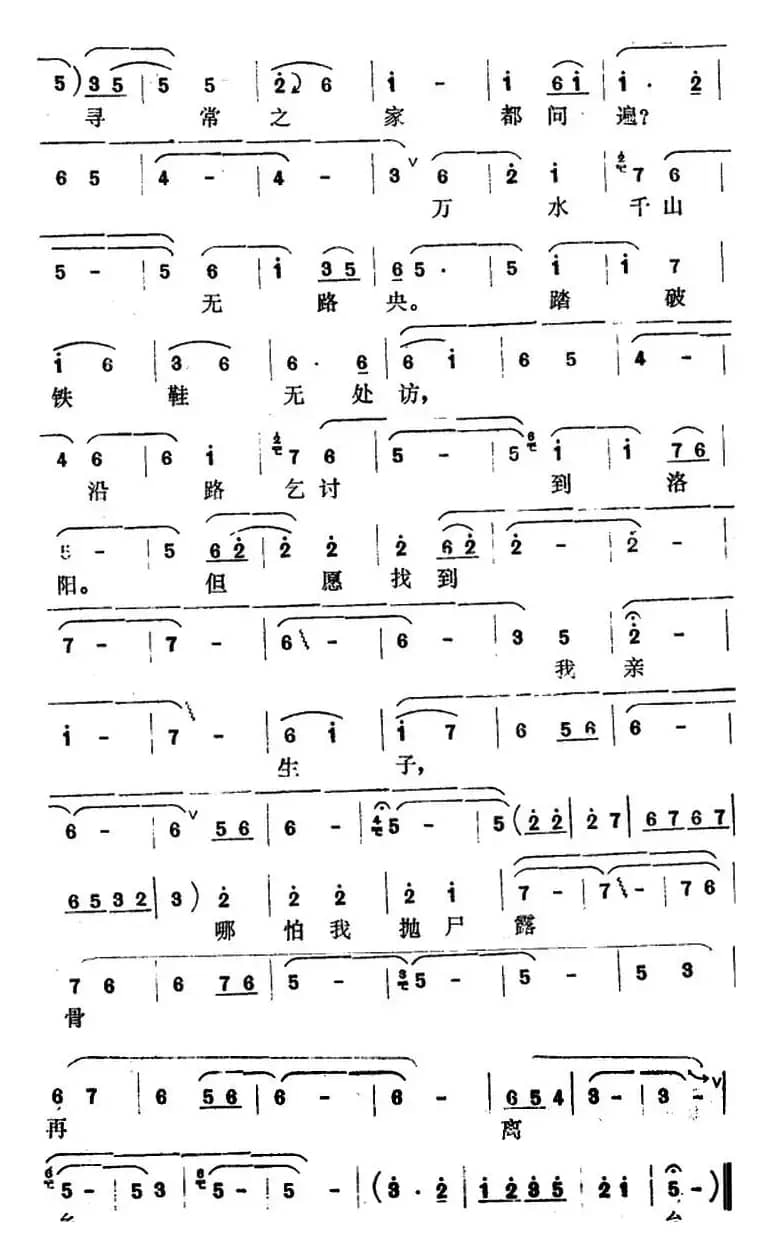 5) 3 5 | 5 5 | 2 6 | i - | i 6 i | i · 2 |
寻 常 之 家 都 问 遍?
6 5 | 4 - | 4 - | 3 ∨ 6 | 2 i | 7 6 |
万 水 千 山
5 - | 5 6 | i 3 5 | 6 5 · | 5 i | i 7 |
无 路 央。 踏 破
i 6 | 3 6 | 6 · 6 | 6 i | 6 5 | 4 - |
铁 鞋 无 处 访,
4 6 | 6 i | 7 6 | 5 - | 5 i | i 7 6 |
沿 路 乞 讨 到 洛
5 - | 5 6 2 | 2 2 | 2 6 2 | 2 - | 2 - |
阳。 但 愿 找 到
7 - | 7 - | 6 - | 6 - | 3 5 | 2 - |
我 亲
i - | 7 - | 6 i | i 7 | 6 5 6 | 6 - |
生 子,
6 - | 6 ∨ 5 6 | 6 - | 5 - | 5 (2 2 | 2 7 | 6 7 6 7 |
6 5 3 2 | 3) 2 | 2 2 | 2 i | 7 - | 7 - | 7 6 |
哪 怕 我 抛 尸 露
7 6 | 6 7 6 | 5 - | 5 - | 5 - | 5 3 |
骨
6 7 | 6 5 6 | 6 - | 6 - | 6 5 4 | 3 - | 3 - ∨ |
再 离
5 - | 5 3 | 5 - | 5 - | (3 · 2 | i 2 3 5 | 2 i | 5 -) ‖